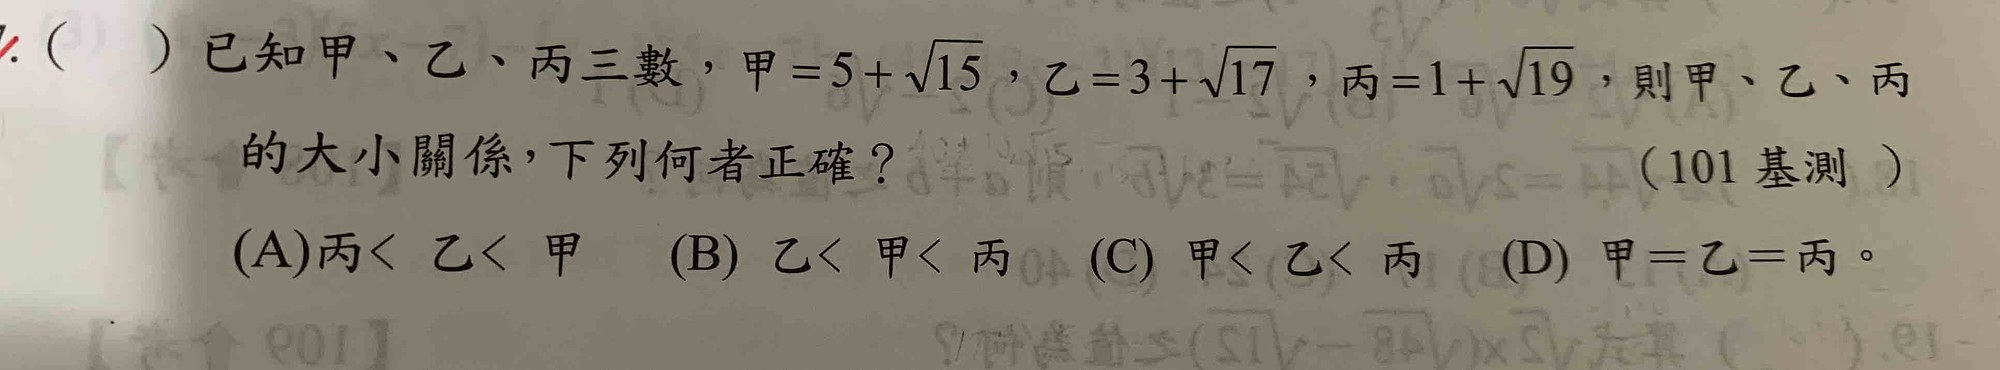 ( ) 已知甲、乙、丙三數，甲=5+√15，乙=3+√17，丙=1+√19，則甲、乙、丙
的大小關係，下列何者正確？ （101 基測 ）
(A)丙< 乙< 甲 (B) 乙< 甲< 丙 (C) 甲< 乙< 丙 (D) 甲=乙=丙。